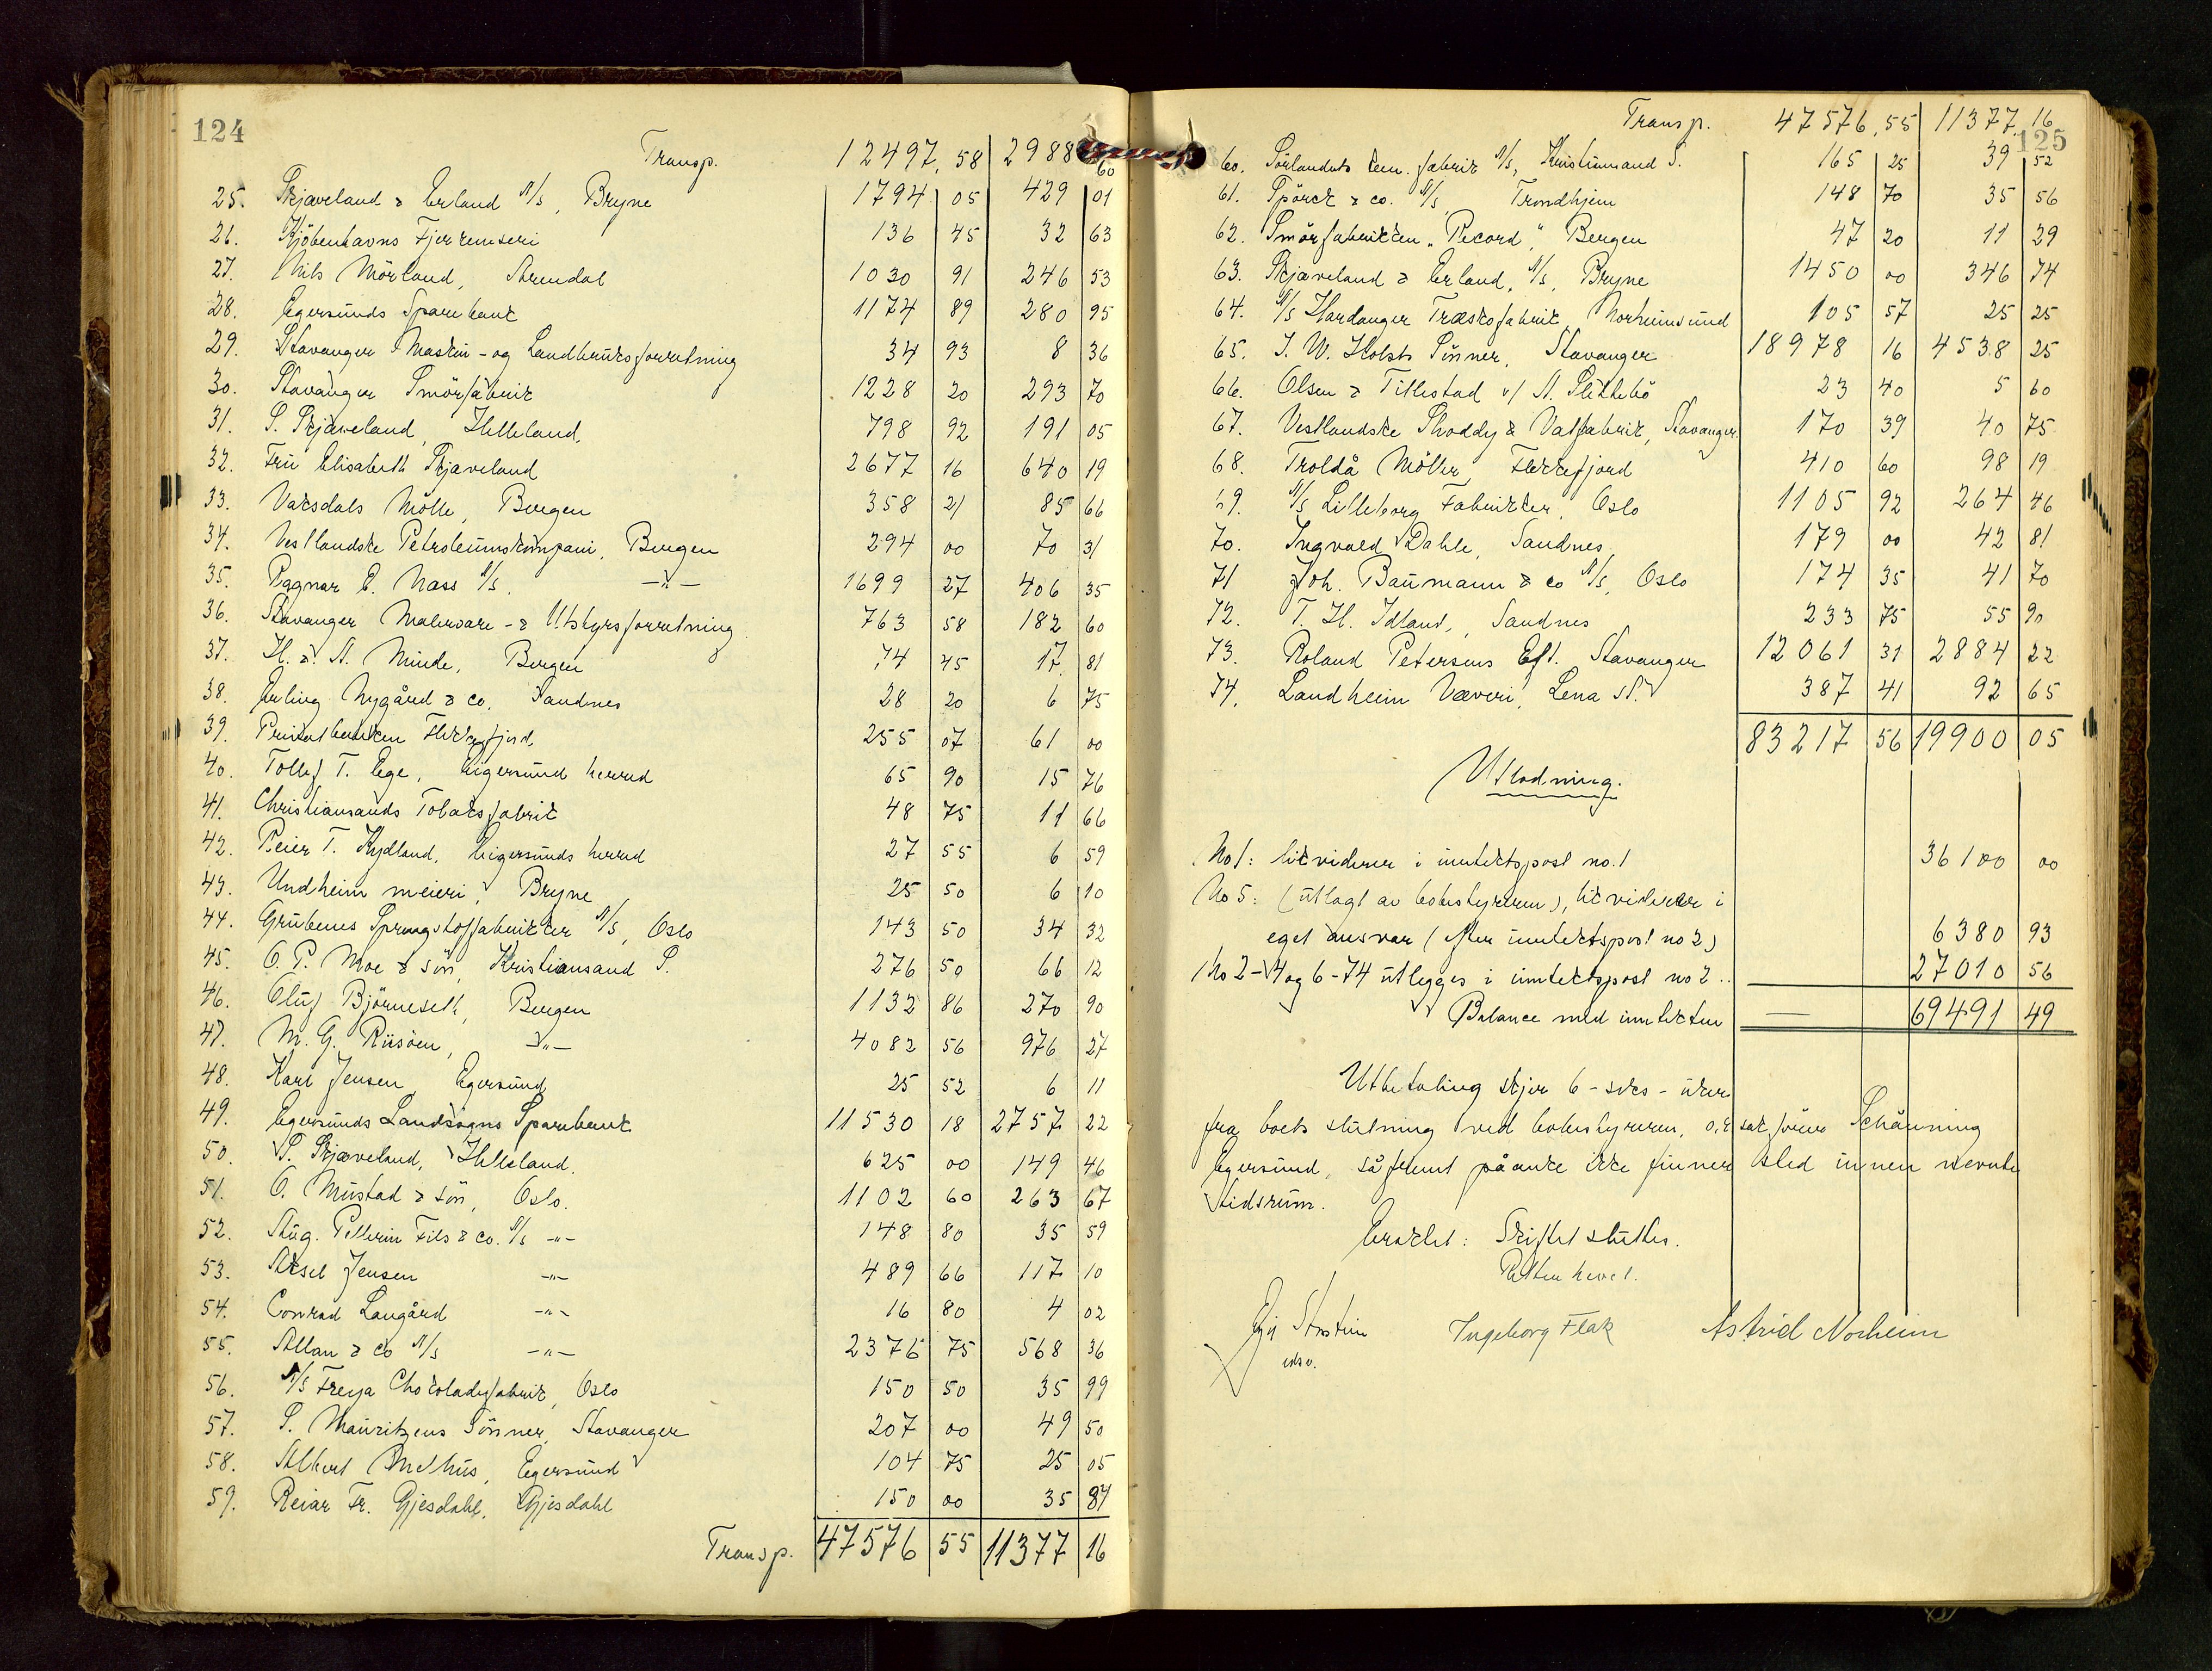 124
Transp. 12497,58 2988 60
25. Skjæveland & Erland A/S, Bryne 1794 05 429 01
26. Kjöbenhavns Fjerrenseri 136 45 32 63
27. Nils Mörland, Arendal 1030 91 246 53
28. Egersunds Sparebank 1174 89 280 95
29. Stavanger Maskin- og Landbruksforretning 34 93 8 36
30. Stavanger Smörfabrik 1228 20 293 70
31. S. Skjæveland, Helleland. 798 92 191 05
32. Fru Elisabeth Skjæveland 2677 16 640 19
33. Vaksdals Mölle, Bergen 358 21 85 66
34. Vestlandske Petroleumskompani, Bergen 294 00 70 31
35. Ragnar E. Næss A/S. -"- 1699 27 406 35
36. Stavanger Malervare- & Utstyrsforretning 763 58 182 60
37. H. & A. Minde, Bergen 74 45 17 81
38. Erling Nygård & co, Sandnes 28 20 6 75
39. Privatbanken Flekkefjord 255 07 61 00
40. Tollef T. Ege, Eigersund herred 65 90 15 76
41. Christiansands Tobaksfabrik 48 75 11 66
42. Reier T. Kydland, Eigersunds herred 27 55 6 59
43. Undheim meieri, Bryne 25 50 6 10
44. Grubenes Sprængstoffabrikker A/S, Oslo 143 50 34 32
45. O. P. Moe & sön, Kristiansand S. 276 50 66 12
46. Oluf Björneseth, Bergen 1132 86 270 90
47. M. G. Riisöen, -"- 4082 56 976 27
48. Karl Jensen, Egersund 25 52 6 11
49. Egersunds Landsogns Sparebank 11530 18 2757 22
50. S. Skjæveland, Helleland. 625 00 149 46
51. O. Mustad & sön, Oslo. 1102 60 263 67
52. Aug. Pellerin Fils & co. A/S -"- 148 80 35 59
53. Aksel Jensen -"- 489 66 117 10
54. Conrad Langård -"- 16 80 4 02
55. Allan & Co A/S -"- 2376 75 568 36
56. A/S Freya Chokoladefabrik, Oslo 150 50 35 99
57. S. Mauritzens Sönner, Stavanger 207 00 49 50
58. Albert Melhus, Egersund 104 75 25 05
59. Reiar Fr. Gjesdahl, Gjesdahl 150 00 35 87
Transp. 47576 55 11377 16
125
Transp. 47576,55 11377,16
60. Sörlandets kem. fabrik A/S, Kristiansand S. 165 25 39 52
61. Spörck & co. A/S, Trondhjem 148 70 35 56
62. Smörfabrikken "Record", Bergen 47 20 11 29
63. Skjæveland & Erland, A/S, Bryne 1450 00 346 74
64. A/S Hardanger Træskofabrik, Norheimsund 105 57 25 25
65. I. W. Holsts Sönner, Stavanger 18978 16 4538 25
66. Olsen & Tillestad v/ A. Slettebö 23 40 5 60
67. Vestlandske Shoddy & Vatfabrik, Stavanger. 170 39 40 75
68. Troldå Möller, Flekkefjord 410 60 98 19
69. A/S Lilleborg Fabrikker, Oslo 1105 92 264 46
70. Ingvald Dahle, Sandnes, 179 00 42 81
71 Joh. Baumann & co A/S, Oslo 174 35 41 70
72. T. H. Idland, Sandnes 233 75 55 90
73. Roland Petersens Eft. Stavanger 12061 31 2884 22
74. Landheim Væveri, Lena st. 387 41 92 65
83217 56 19900 05
Utlodning.
No 1: likviderer i inntektspost no. 1 36100 00
No 5: (utlagt av bobestyreren), likviderer i
eget ansvar (efter inntektspost no 2) 6380 93
No 2-4 og 6-74 utlegges i inntektspost no 2.. 27010 56
Balance med inntekten 69491 49
Utbetaling skjer 6-seks-uker
fra boets slutning ved bobestyreren, o.r.sakförer Schänning
Egersund, såfremt påanke ikke finner sted innen nevnte
tidsrum.
Eraktet: Skiftet sluttes.
Retten hevet.
Ingeborg Flak Astrid Norheim